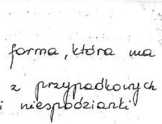 forma, która ma
z przypadkowych
i niespodzianki